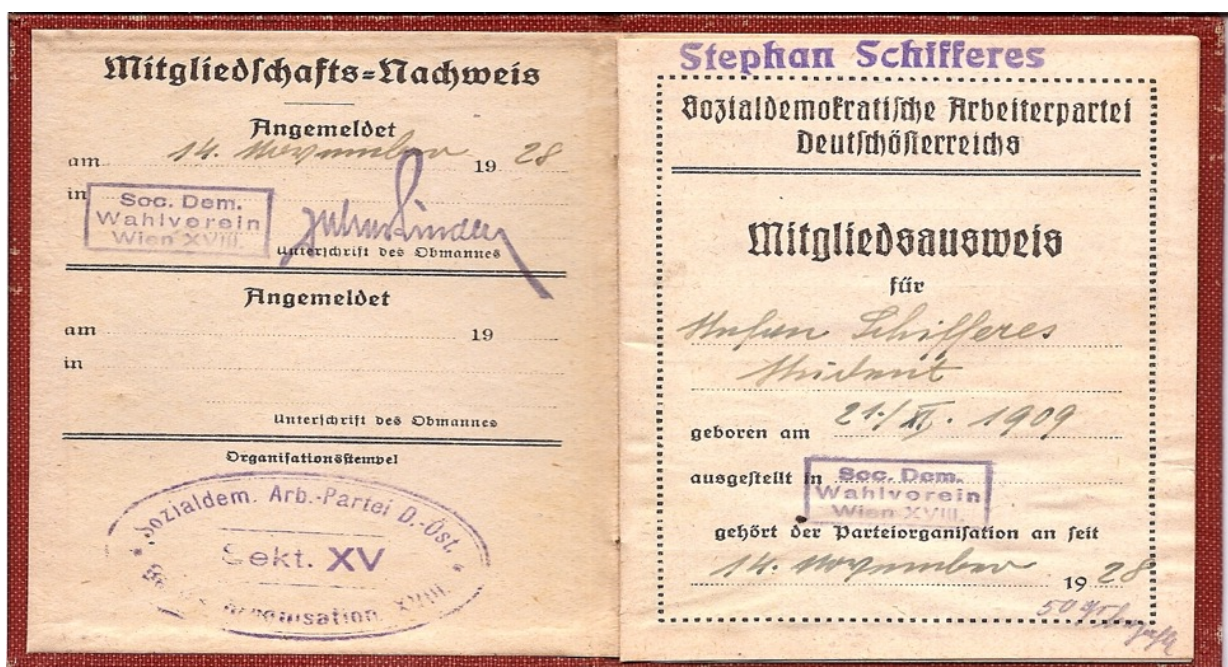 Mitgliedschafts=Nachweis
Angemeldet
am 14. November 19 28
in
Soc. Dem.
Wahlverein
Wien XVIII.
Unterschrift des Obmannes
Angemeldet
am 19
in
Unterschrift des Obmannes
Organisationsstempel
Sozialdem. Arb.-Partei D.-Öst.
Sekt. XV
organisation XVIII.
Stephan Schifferes
Sozialdemokratische Arbeiterpartei
Deutschösterreichs
Mitgliedsausweis
für
Stefan Schifferes
Student
geboren am 21./XI. 1909
ausgestellt in
Soc. Dem.
Wahlverein
Wien XVIII.
gehört der Parteiorganisation an seit
14. November 19 28
50